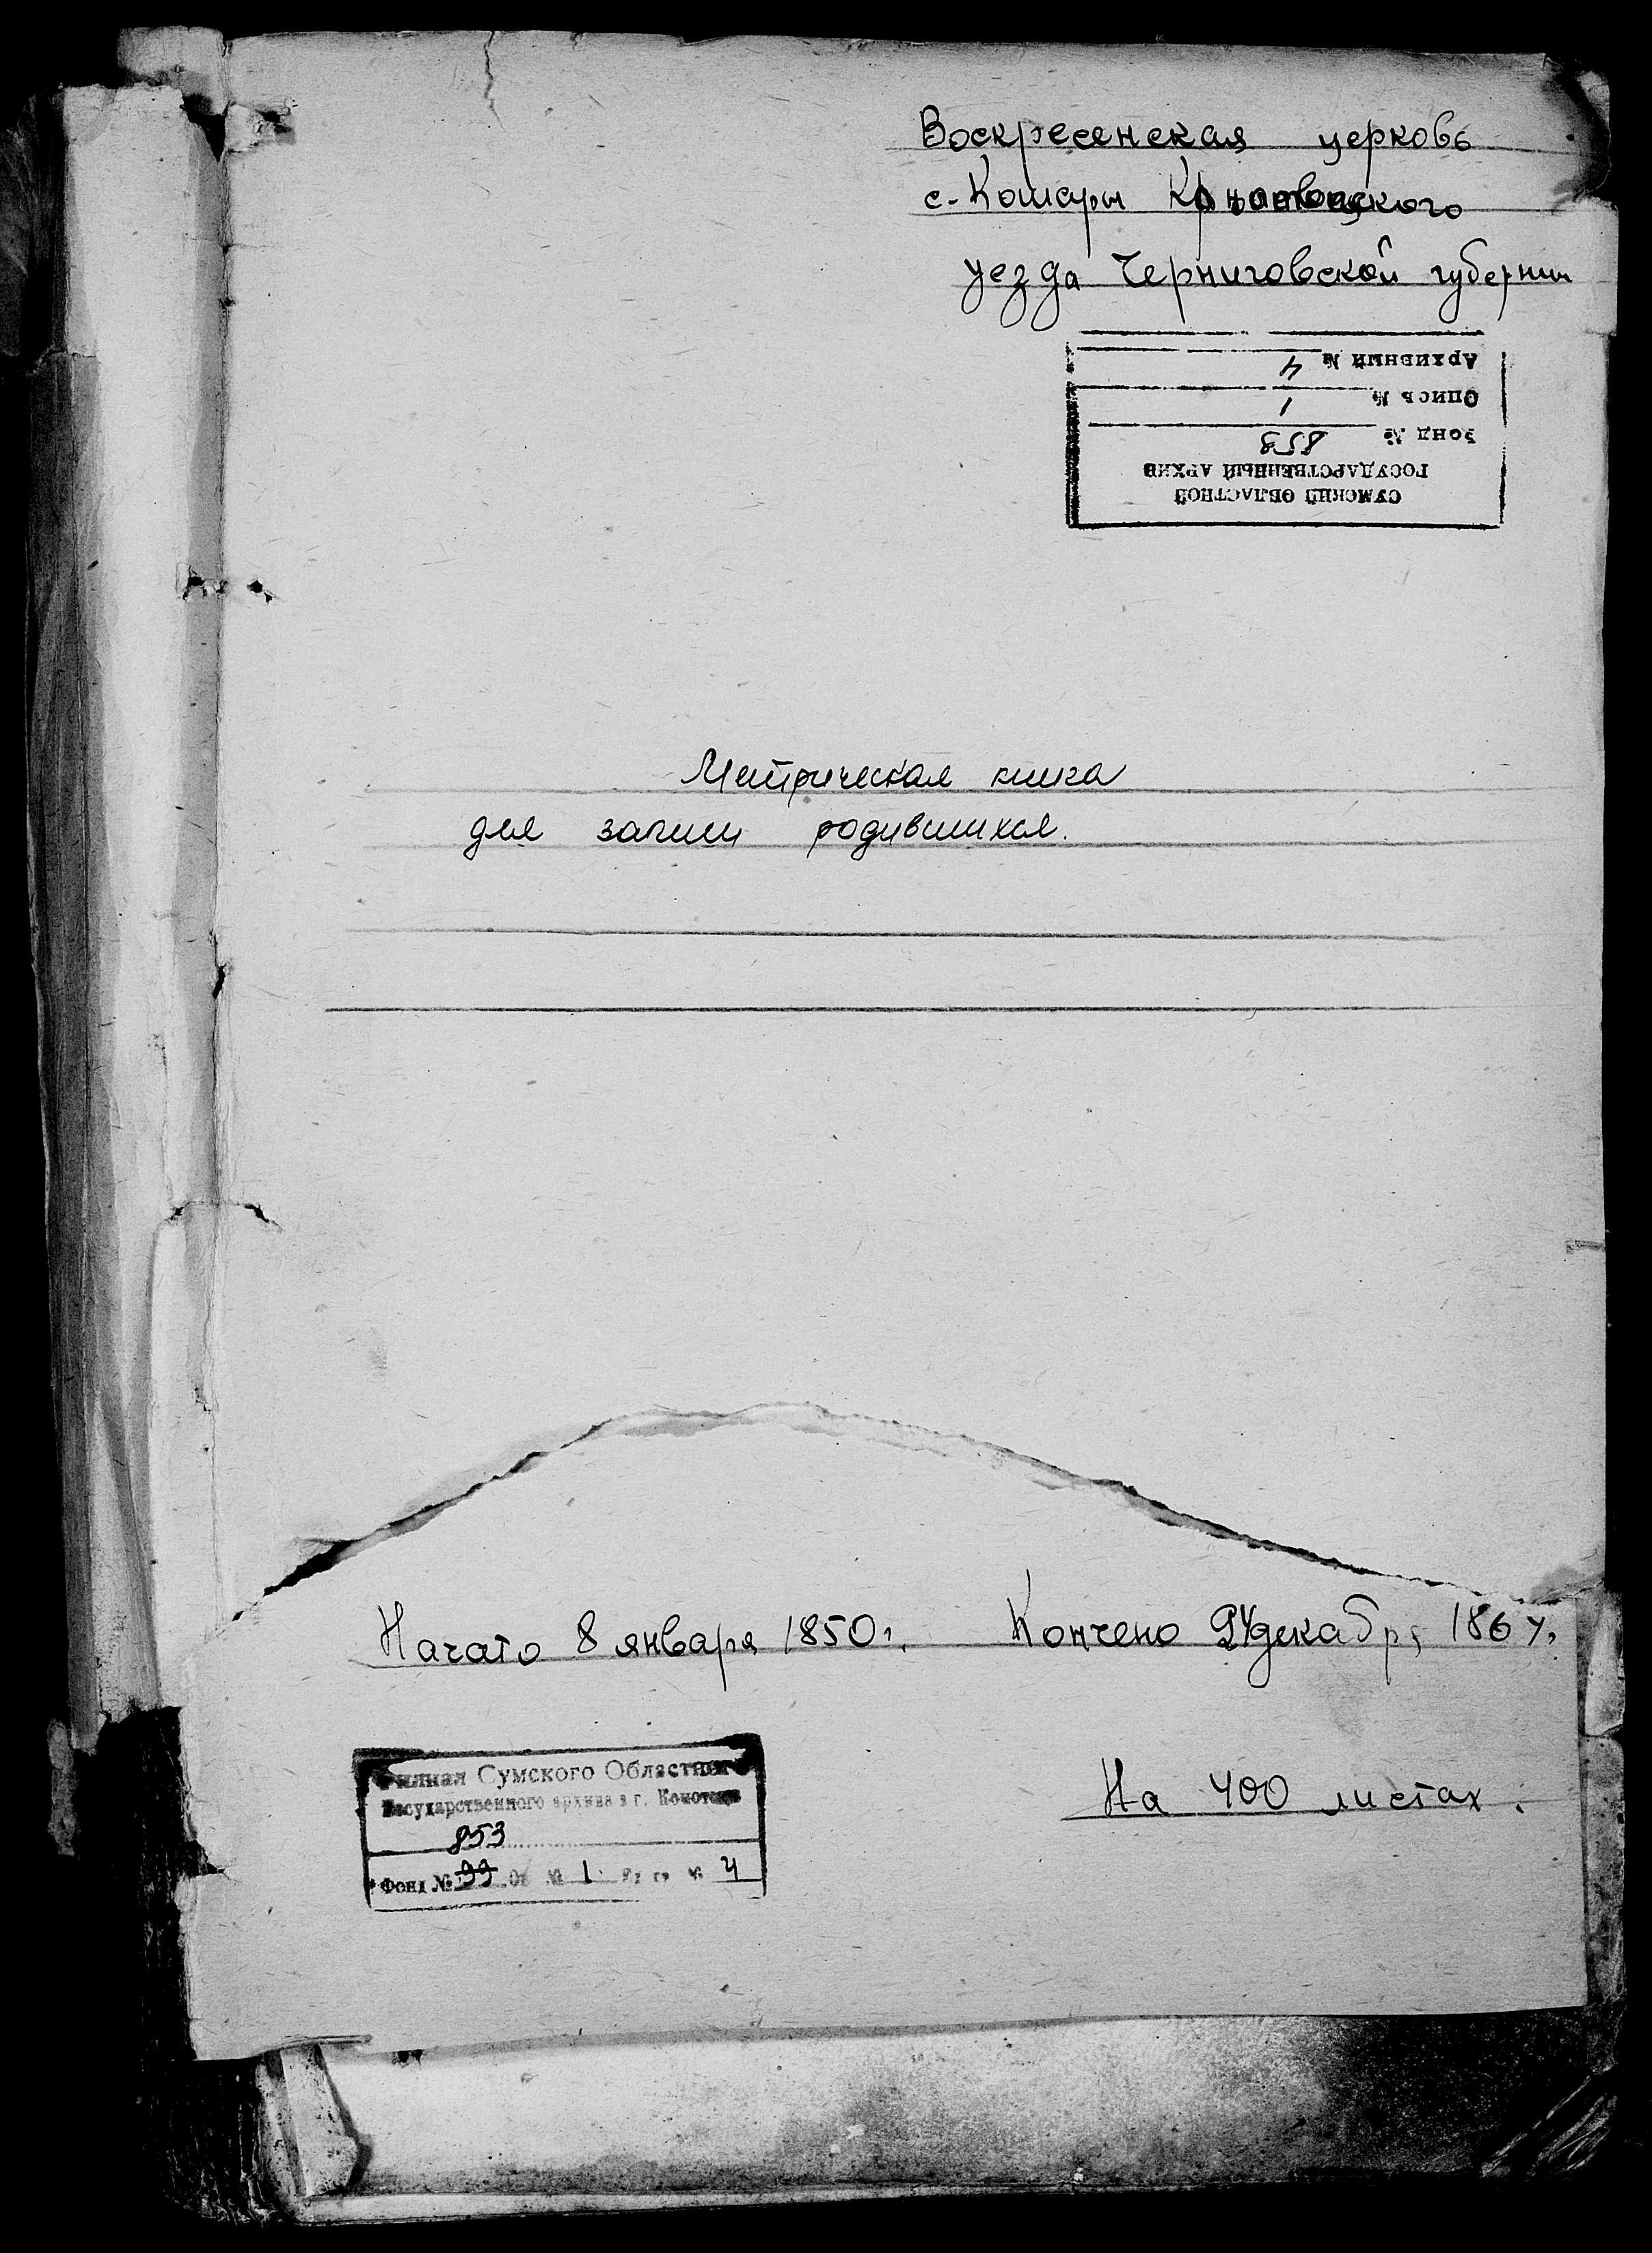 Воскресенская церковь
с. Кошары
уезда Черниговской губернии
Архивный № 4
Опись № 1
Фонд № 853
ГОСУДАРСТВЕННЫЙ АРХИВ
СУМСКИЙ ОБЛАСТНОЙ
Метрическая книга
для записи родившихся.
Начато 8 января 1850г. Кончено 24 декабря
На 400 листах.
Филиал Сумского Областного
Государственного архива в г. Конотопе
853
Фонд № 99 Оп № 1 4